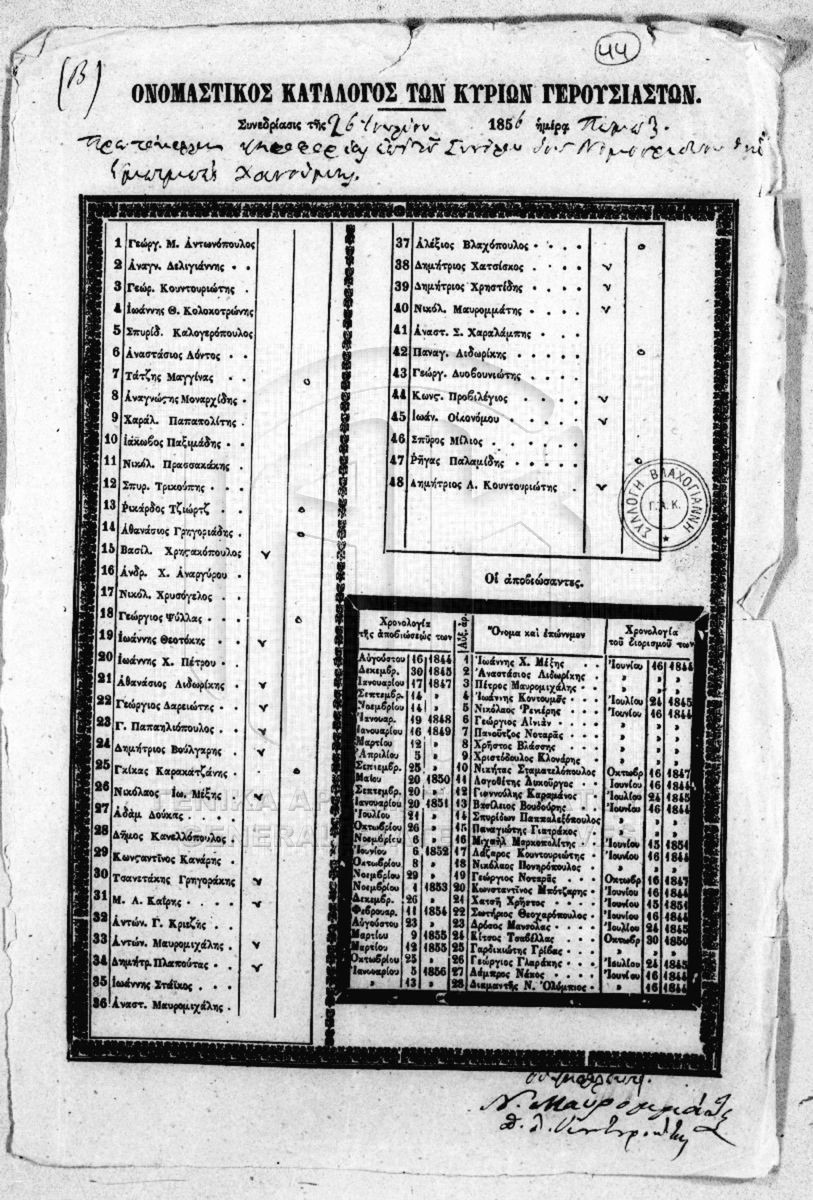 44
(B)
ΟΝΟΜΑΣΤΙΚΟΣ ΚΑΤΑΛΟΓΟΣ ΤΩΝ ΚΥΡΙΩΝ ΓΕΡΟΥΣΙΑΣΤΩΝ.
Συνεδρίασις τῆς 26 1856 ἡμέρᾳ
1 Γεώργ. Μ. Ἀντωνόπουλος
2 Ἀναγν. Δεληγιάννης
3 Γεώρ. Κουντουριώτης
4 Ἰωάννης Θ. Κολοκοτρώνης
5 Σπυρίδ. Καλογερόπουλος
6 Ἀναστάσιος Λόντος
7 Τάτζης Μαγγίνας
8 Ἀναγνώστης Μοναρχίδης
9 Χαράλ. Παπαπολίτης
10 Ἰάκωβος Παξιμάδης
11 Νικόλ. Πρασσακάκης
12 Σπυρ. Τρικούπης
13 Ῥικάρδος Τζιώρτζ
14 Ἀθανάσιος Γρηγοριάδης
15 Βασίλ. Χρηστακόπουλος
16 Ἀνδρ. Χ. Ἀναργύρου
17 Νικόλ. Χρυσόγελος
18 Γεώργιος Ψύλλας
19 Ἰωάννης Θεοτόκης
20 Ἰωάννης Χ. Πέτρου
21 Ἀθανάσιος Λιδωρίκης
22 Γεώργιος Δαρειώτης
23 Γ. Παπαηλιόπουλος
24 Δημήτριος Βούλγαρης
25 Γκίκας Καρακατζάνης
26 Νικόλαος Ἰω. Μέξης
27 Ἀδὰμ Δούκας
28 Δῆμος Κανελλόπουλος
29 Κωνσταντῖνος Κανάρης
30 Τσανετάκης Γρηγοράκης
31 Μ. Λ. Καΐρης
32 Ἀντών. Γ. Κριεζῆς
33 Ἀντών. Μαυρομιχάλης
34 Δημήτρ. Πλαπούτας
35 Ἰωάννης Στάϊκος
36 Ἀναστ. Μαυρομιχάλης
37 Ἀλέξιος Βλαχόπουλος
38 Δημήτριος Χατσίσκος
39 Δημήτριος Χρηστίδης
40 Νικόλ. Μαυρομμάτης
41 Ἀναστ. Σ. Χαραλάμπης
42 Παναγ. Λιδωρίκης
43 Γεώργ. Δυοβουνιώτης
44 Κωνστ. Προβιλέγιος
45 Ἰωάν. Οἰκονόμου
46 Σπῦρος Μίλιος
47 Ῥήγας Παλαμίδης
48 Δημήτριος Λ. Κουντουριώτης
ΣΥΛΛΟΓΗ ΒΛΑΧΟΓΙΑΝΝΗ
Γ.Α.Κ.
Οἱ ἀποβιώσαντες.
Χρονολογία τῆς ἀποβιώσεώς των Αὔξ. ἀρ. Ὄνομα καὶ ἐπώνυμον Χρονολογία τοῦ διορισμοῦ των
Αὐγούστου 16 1844 1 Ἰωάννης Χ. Μέξης Ἰουνίου 16 1844
Δεκεμβρ. 30 1845 2 Ἀναστάσιος Λιδωρίκης » » »
Ἰανουαρίου 17 1847 3 Πέτρος Μαυρομιχάλης » » »
Σεπτεμβρ. 14 » 4 Ἰωάννης Κοντουμᾶς Ἰουλίου 24 1845
Νοεμβρίου 14 » 5 Νικόλαος Ῥενιέρης Ἰουνίου 16 1844
Ἰανουαρ. 19 1848 6 Γεώργιος Αἰνιὰν » » »
Ἰανουαρίου 16 1849 7 Πανοῦτζος Νοταρᾶς » » »
Μαρτίου 12 » 8 Χρῆστος Βλάσσης » » »
Ἀπριλίου 5 » 9 Χριστόδουλος Κλονάρης » » »
Σεπτεμβρ. 25 » 10 Νικήτας Σταματελόπουλος Ὀκτωβρ 16 1847
Μαΐου 20 1850 11 Λογοθέτης Λυκοῦργος Ἰουνίου 16 1844
Σεπτεμβρ. 20 » 12 Γιαννούλης Καραμάνος Ἰουλίου 24 1845
Ἰανουαρίου 20 1851 13 Βασίλειος Βουδούρης Ἰουνίου 16 1844
Ἰουλίου 21 » 14 Σπυρίδων Παππαλεξόπουλος » » »
Ὀκτωβρίου 26 » 15 Παναγιώτης Γιατράκος » » »
Νοεμβρίου 6 » 16 Μιχαὴλ Μαρκοπολίτης Ἰουνίου 15 1851
Ἰουνίου 6 1852 17 Λάζαρος Κουντουριώτης Ἰουνίου 16 1844
Ὀκτωβρίου 8 » 18 Νικόλαος Πονηρόπουλος » » »
Νοεμβρίου 29 » 19 Γεώργιος Νοταρᾶς Ὀκτωβρ 16 1847
Νοεμβρίου 1 1853 20 Κωνσταντῖνος Μπότζαρης Ἰουνίου 16 1844
Δεκεμβρ. 26 » 21 Χατσῆ Χρῆστος Ἰουνίου 15 1851
Φεβρουαρ. 11 1854 22 Σωτήριος Θεοχαρόπουλος Ἰουνίου 16 1844
Αὐγούστου 23 » 23 Δρόσος Μανσόλας Ἰουλίου 24 1845
Μαρτίου 9 1855 24 Κίτσος Τσαβέλλας Ὀκτωβρ 30 1850
Μαρτίου 12 1855 25 Γαρδικιώτης Γρίβας » » »
Ὀκτωβρίου 25 » 26 Γεώργιος Γλαράκης Ἰουλίου 24 1845
Ἰανουαρίου 5 1856 27 Λάμπρος Νάκος Ἰουνίου 16 1844
» 13 » 28 Διαμαντῆς Ν. Ὀλύμπιος » 16 1844